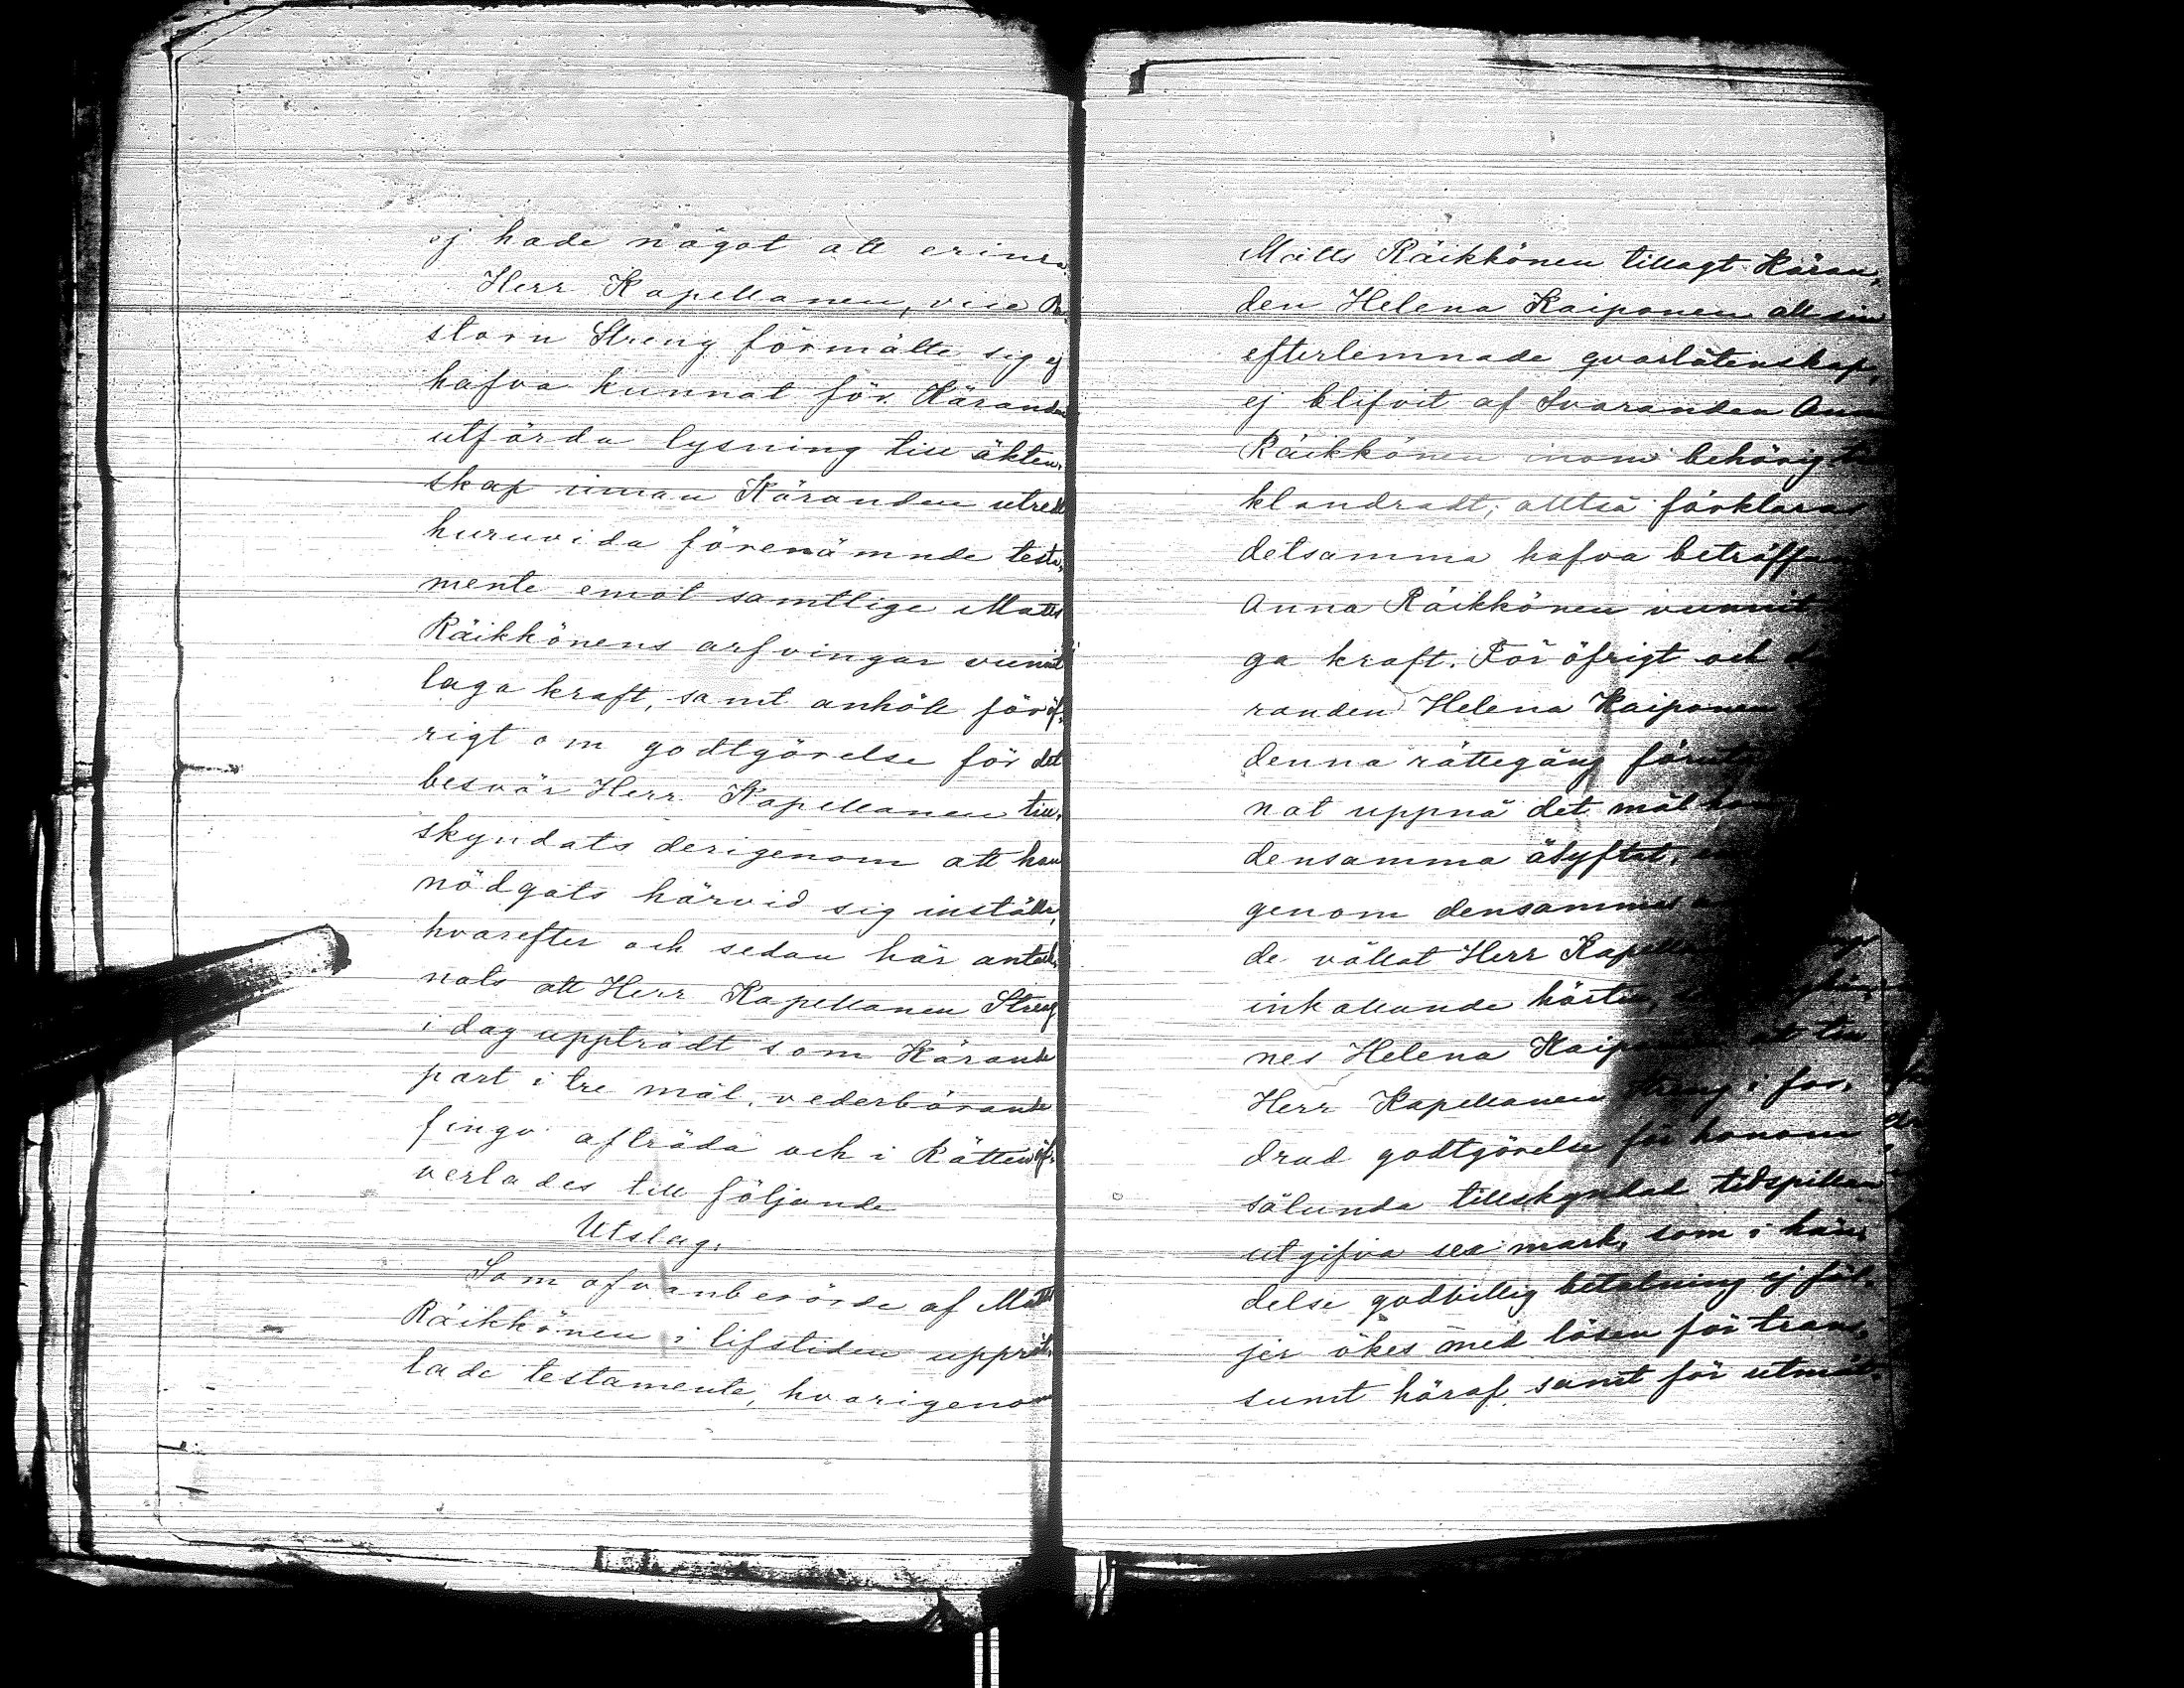 ej hade något att erinra
Herr Kapellanen, vice Pa-
storn Streng förmälte sig ej
hafva kunnat för Käranden
utfärda lysning till äkten-
skap innan Käranden utredt
huruvida förenämnde testa-
mente emot samtlige Matts
Räikkönens arfvingar vunnit
laga kraft, samt anhöll för öf-
rigt om godtgörelse för det
besvär Herr Kapellanen till-
skyndats derigenom att han
nödgats härvid sig inställa,
hvarefter och sedan här anteck-
nats att Herr Kapellanen Streng
i dag uppträdt som Kärande
part i tre mål, vederbörande
fingo afträda och i Rätten öf-
verlades till följande
Utslag.
Som ofvanberörde af Matts
Räikkönen i lifstiden upprät-
tade testamente, hvarigenom
Matts Räikkönen tillagt Käran-
den Helena Kaiponen all sin
efterlemnade qvarlåtenskap,
ej blifvit af Svaranden Anna
Räikkönen inom behörig tid
klandradt; alltså förklaras
detsamma hafva beträffande
Anna Räikkönen vunnit
ga kraft. För öfrigt och
randen Helena Kaiponen
denna rättegång förutom
nat uppnå det mål hon
densamma åsyftat,
genom densammas
de vållat Herr Kapellanen
inkallande härtill,
nes Helena Kaiponen att till
Herr Kapellanen Streng i for-
drad godtgörelse för honom
sålunda tillskyndad tidspillan
utgifva sex mark, som i hän-
delse godvillig betalning ej föl-
jer ökes med lösen för trans-
sumt häraf samt för utmät-